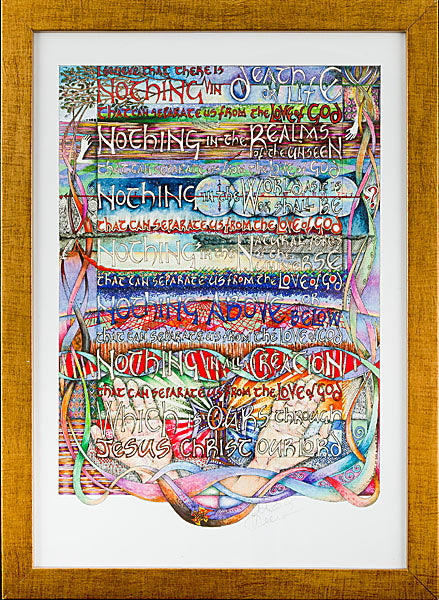 I believe that there is
NOTHING in death or life
that can separate us from the Love of God
NOTHING in the REALMS
of the UNSEEN
that can separate us from the Love of God
NOTHING in the WORLD as it is
or shall be
that can separate us from the Love of God
NOTHING in the NATURAL forces
UNIVERSE
that can separate us from the Love of God
NOTHING ABOVE or BELOW
that can separate us from the Love of God
NOTHING in all CREATION
that can separate us from the Love of God
WHICH is OURS through
JESUS CHRIST OUR LORD